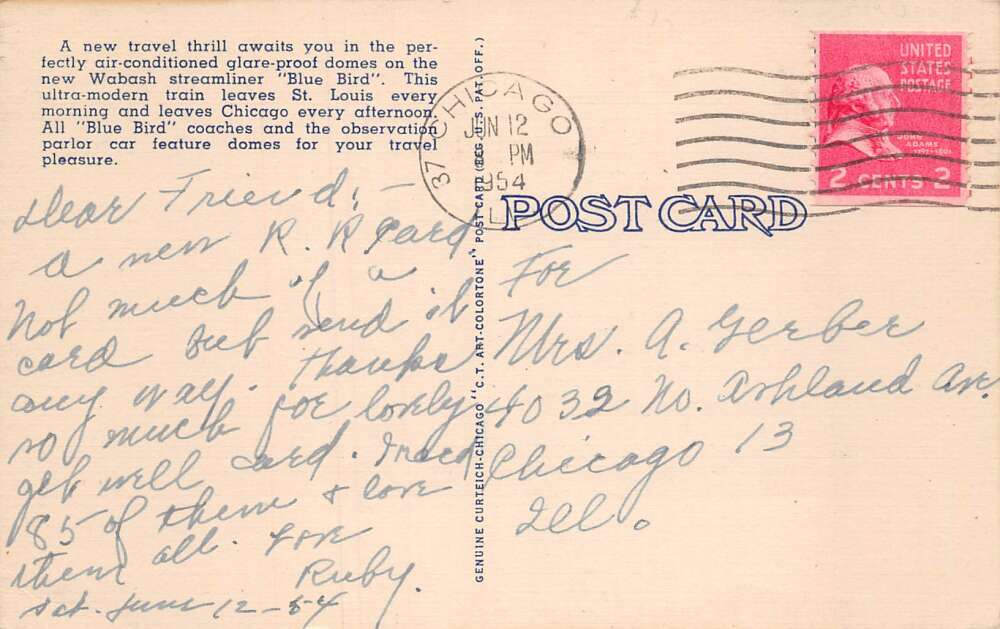 A new travel thrill awaits you in the per-
fectly air-conditioned glare-proof domes on the
new Wabash streamliner "Blue Bird". This
ultra-modern train leaves St. Louis every
morning and leaves Chicago every afternoon.
All "Blue Bird" coaches and the observation
parlor car feature domes for your travel
pleasure.
Dear Friend; –
a new R. R card
Not much of a
card but send it
any way. thanks
so much for lovely
get well card.
85 of them & love
them all. For
Ruby.
Sat. June 12–54
GENUINE CURTEICH-CHICAGO "C.T. ART-COLORTONE" POST CARD (REG. U.S. PAT. OFF.)
CHICAGO
37
JUN 12
PM
1954
UNITED
STATES
POSTAGE
JOHN
ADAMS
1797-1801
2 CENTS 2
POST CARD
For
Mrs. A. Gerber
4032 No. Ashland Ave.
Chicago 13
Ill.